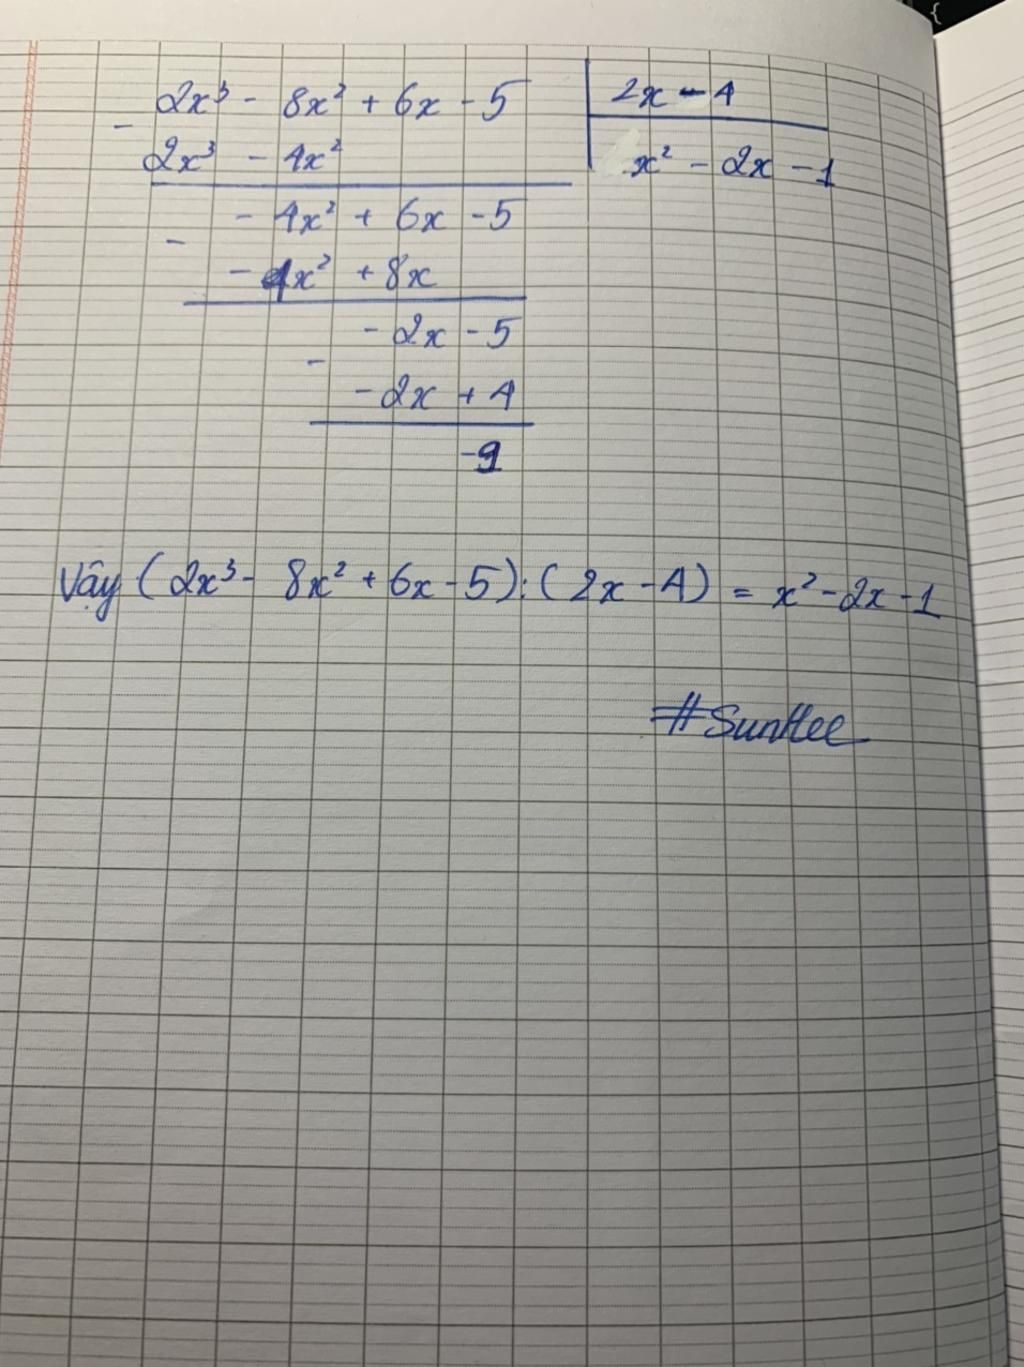 2x³ - 8x² + 6x - 5 | 2x - 4
-
2x³ - 4x² | x² - 2x - 1
- 4x² + 6x - 5
-
- 4x² + 8x
- 2x - 5
-
- 2x + 4
-9
Vậy (2x³ - 8x² + 6x - 5) : (2x - 4) = x² - 2x - 1
#SunHee
{